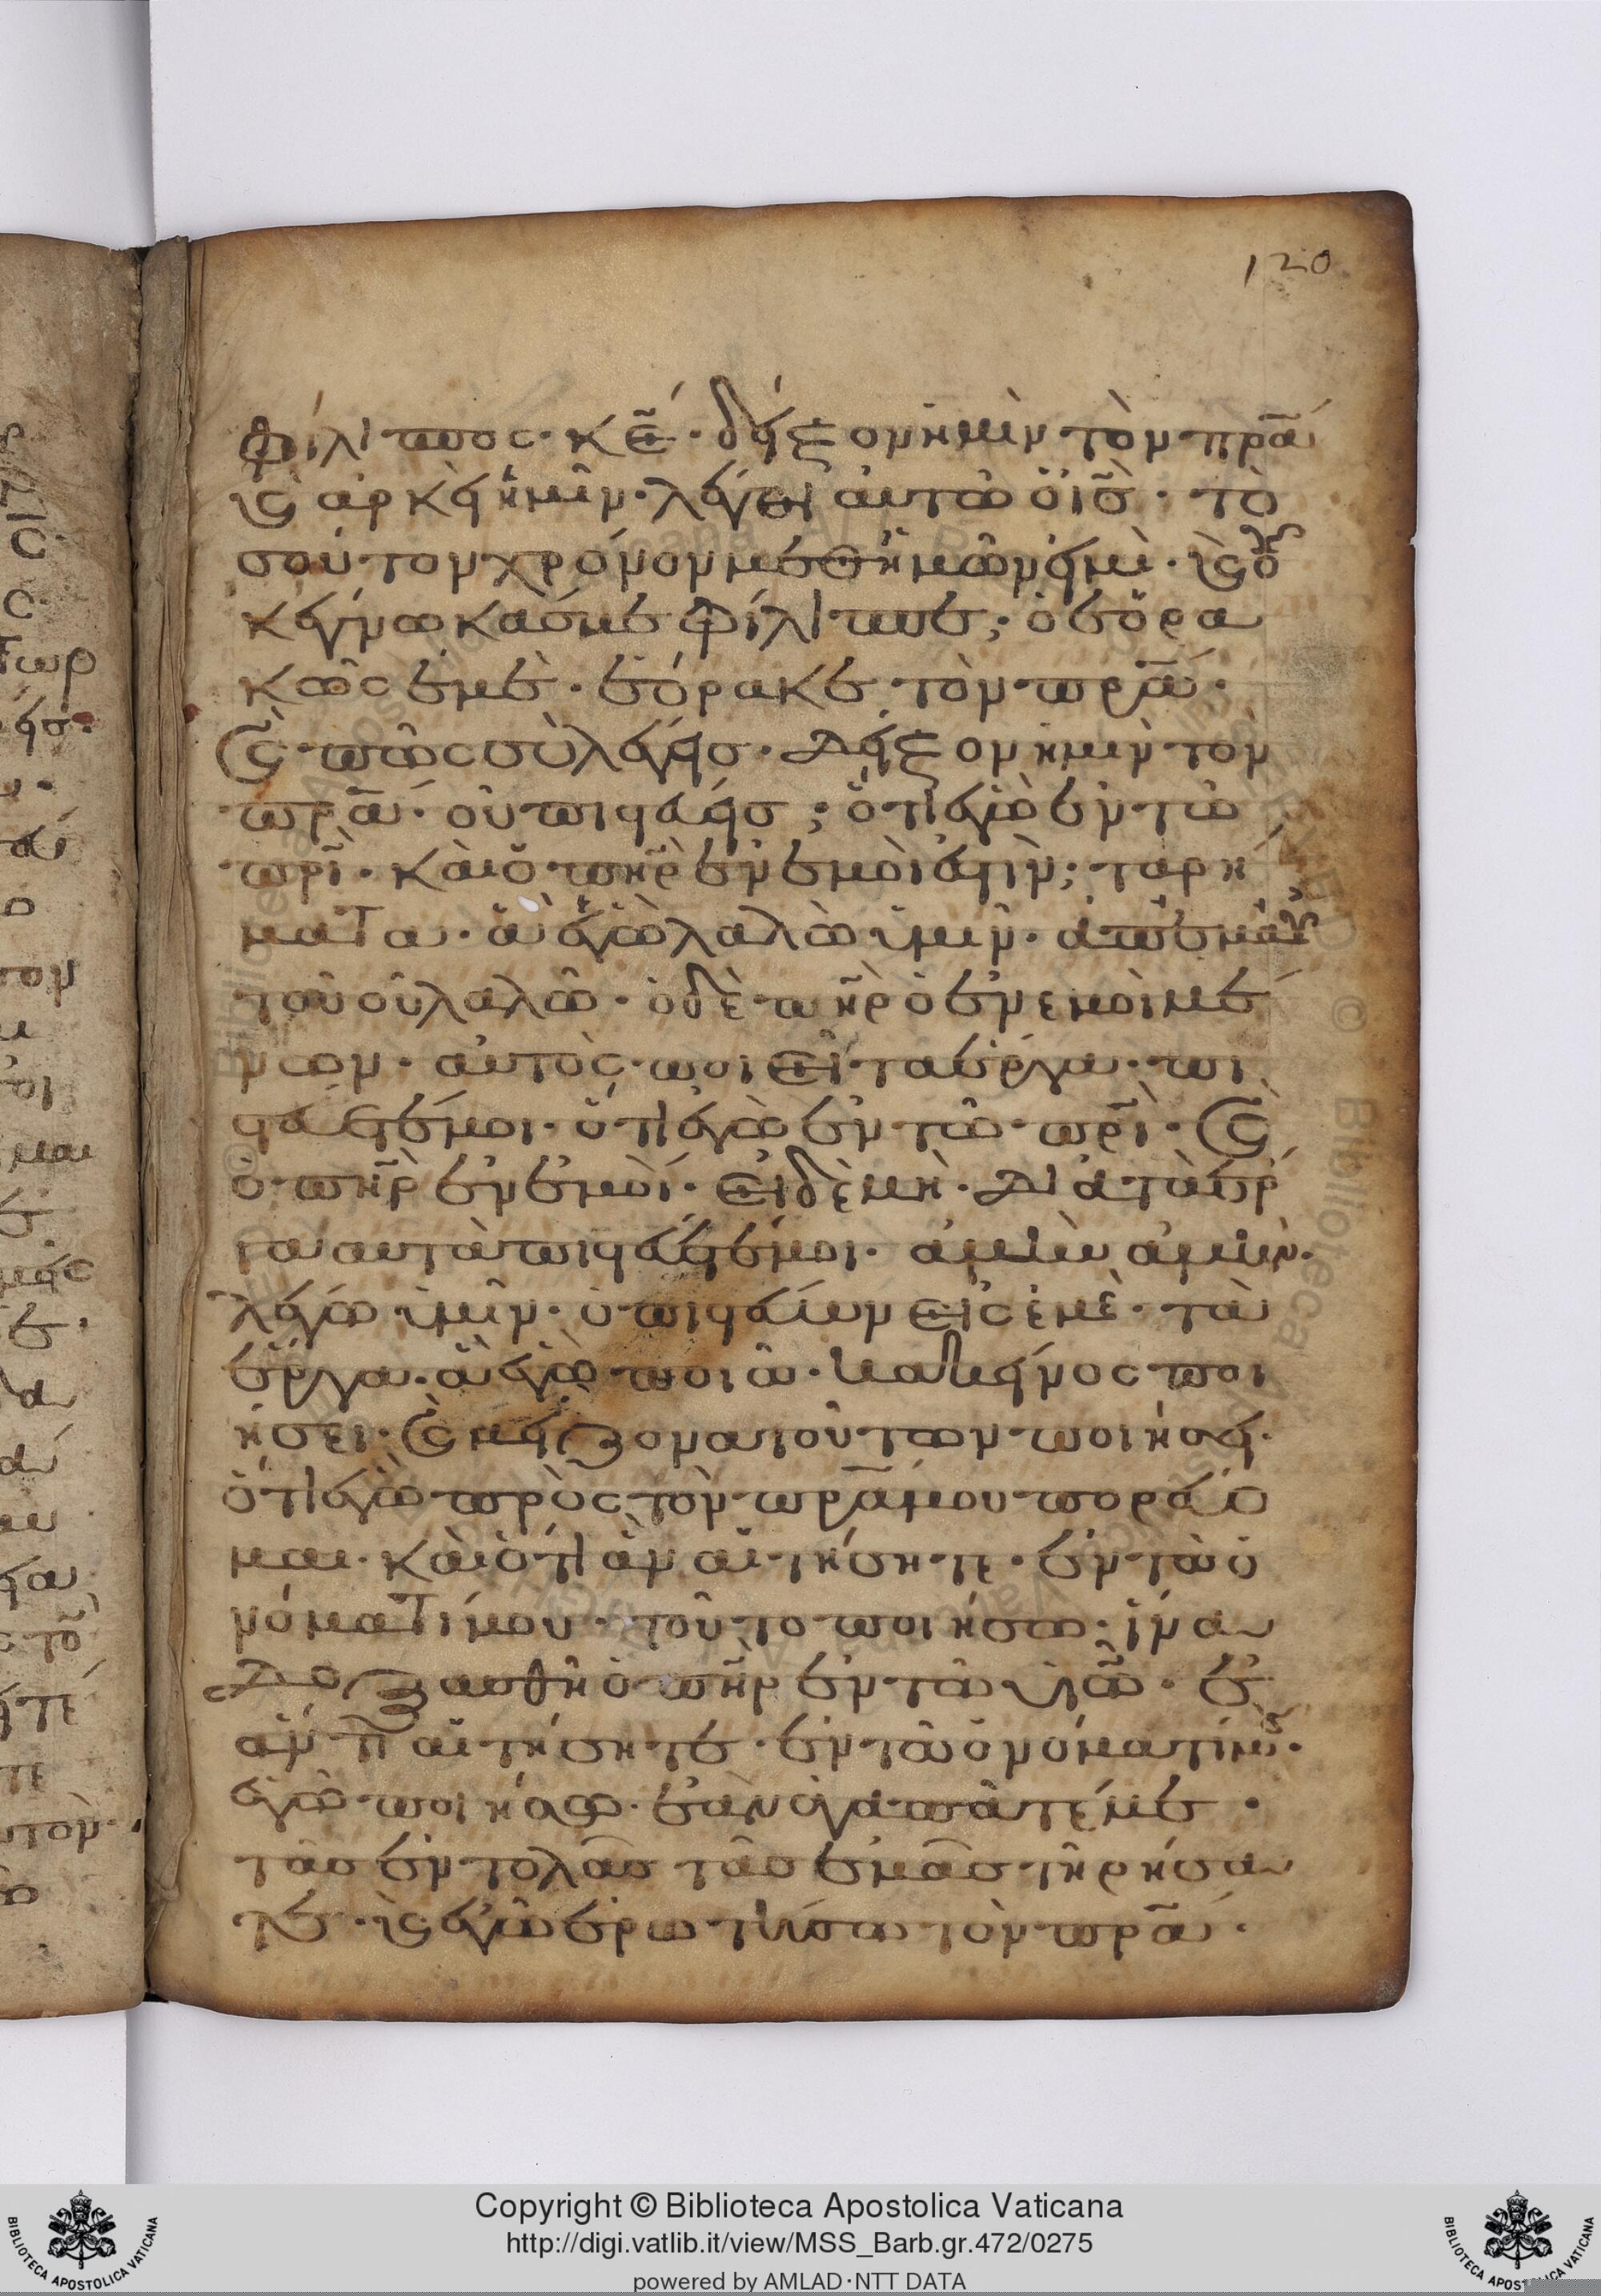 120
φίλιππος· κε̄· δεῖξον ἡμὶν τὸν πρ̄α
καὶ ἀρκεὶ ἡμῖν· λέγει αὐτῶ ὁ ις̄· το
σοῦτον χρόνον μεθ ἡμῶν εἰμὶ· καὶ οὐκ
ἔγνωκάσ με φίλιππε; ὁ ἑορα
κῶς ἐμὲ· ἑόρακε τὸν πρ̄α·
καὶ πῶς σὺ λέγεισ· δεῖξον ἡμὶν τὸν
πρ̄α· οὐ πιστεύεισ; ὅτι ἐγὼ ἐν τῶ
πρ̄ι· καὶ ὁ πη̄ρ ἐν ἐμοὶ ἐστὶν; τα ρή
ματα· ἃ ἐγὼ λαλῶ ὑμῖν· ἀπ ἐμαυ
τοῦ οὐ λαλῶ· ὁ δὲ πη̄ρ ὁ ἐν εμοὶ μέ
νων· αὐτὸς ποιεῖ τα ἔργα· πι
στεύετέ μοι· ὅτι ἐγὼ ἐν τῶ πρ̄ι· καὶ
ὁ πη̄ρ ἐν ἐμοί· εἰ δὲ μὴ· διὰ τὰ ἔρ
γα αυτὰ πιστεύετέ μοι· ἀμὴν ἀμὴν·
λέγω ὑμῖν· ὁ πιστεύων εἰς ἐμὲ· τὰ
ἔργα· ἃ ἐγὼ ποιῶ· κακεῖνος ποι
ήσει· καὶ μείζονα τούτων ποιήσει·
ὅτι ἐγὼ πρὸς τὸν πρ̄α μου πορεύο
μαι· καὶ ὅτι ἀν αἰτήσητε· ἐν τῶ ὀ
νόματί μου· τοῦτο ποιήσω· ἵνα
δοξασθῆ ὁ πη̄ρ ἐν τῶ υἱῶ· ἐ
άν τι αἰτήσητε· ἐν τῶ ὀνόματί μου·
ἐγὼ ποιήσω· ἐὰν ἀγαπᾶτέ με·
τὰσ ἐντολὰσ τὰσ ἐμὰσ τηρήσα
τε· καὶ ἐγὼ ἐρωτήσω τὸν πρ̄α·
Copyright © Biblioteca Apostolica Vaticana
http://digi.vatlib.it/view/MSS_Barb.gr.472/0275
powered by AMLAD·NTT DATA
BIBLIOTECA APOSTOLICA VATICANA
BIBLIOTECA APOSTOLICA VATICANA